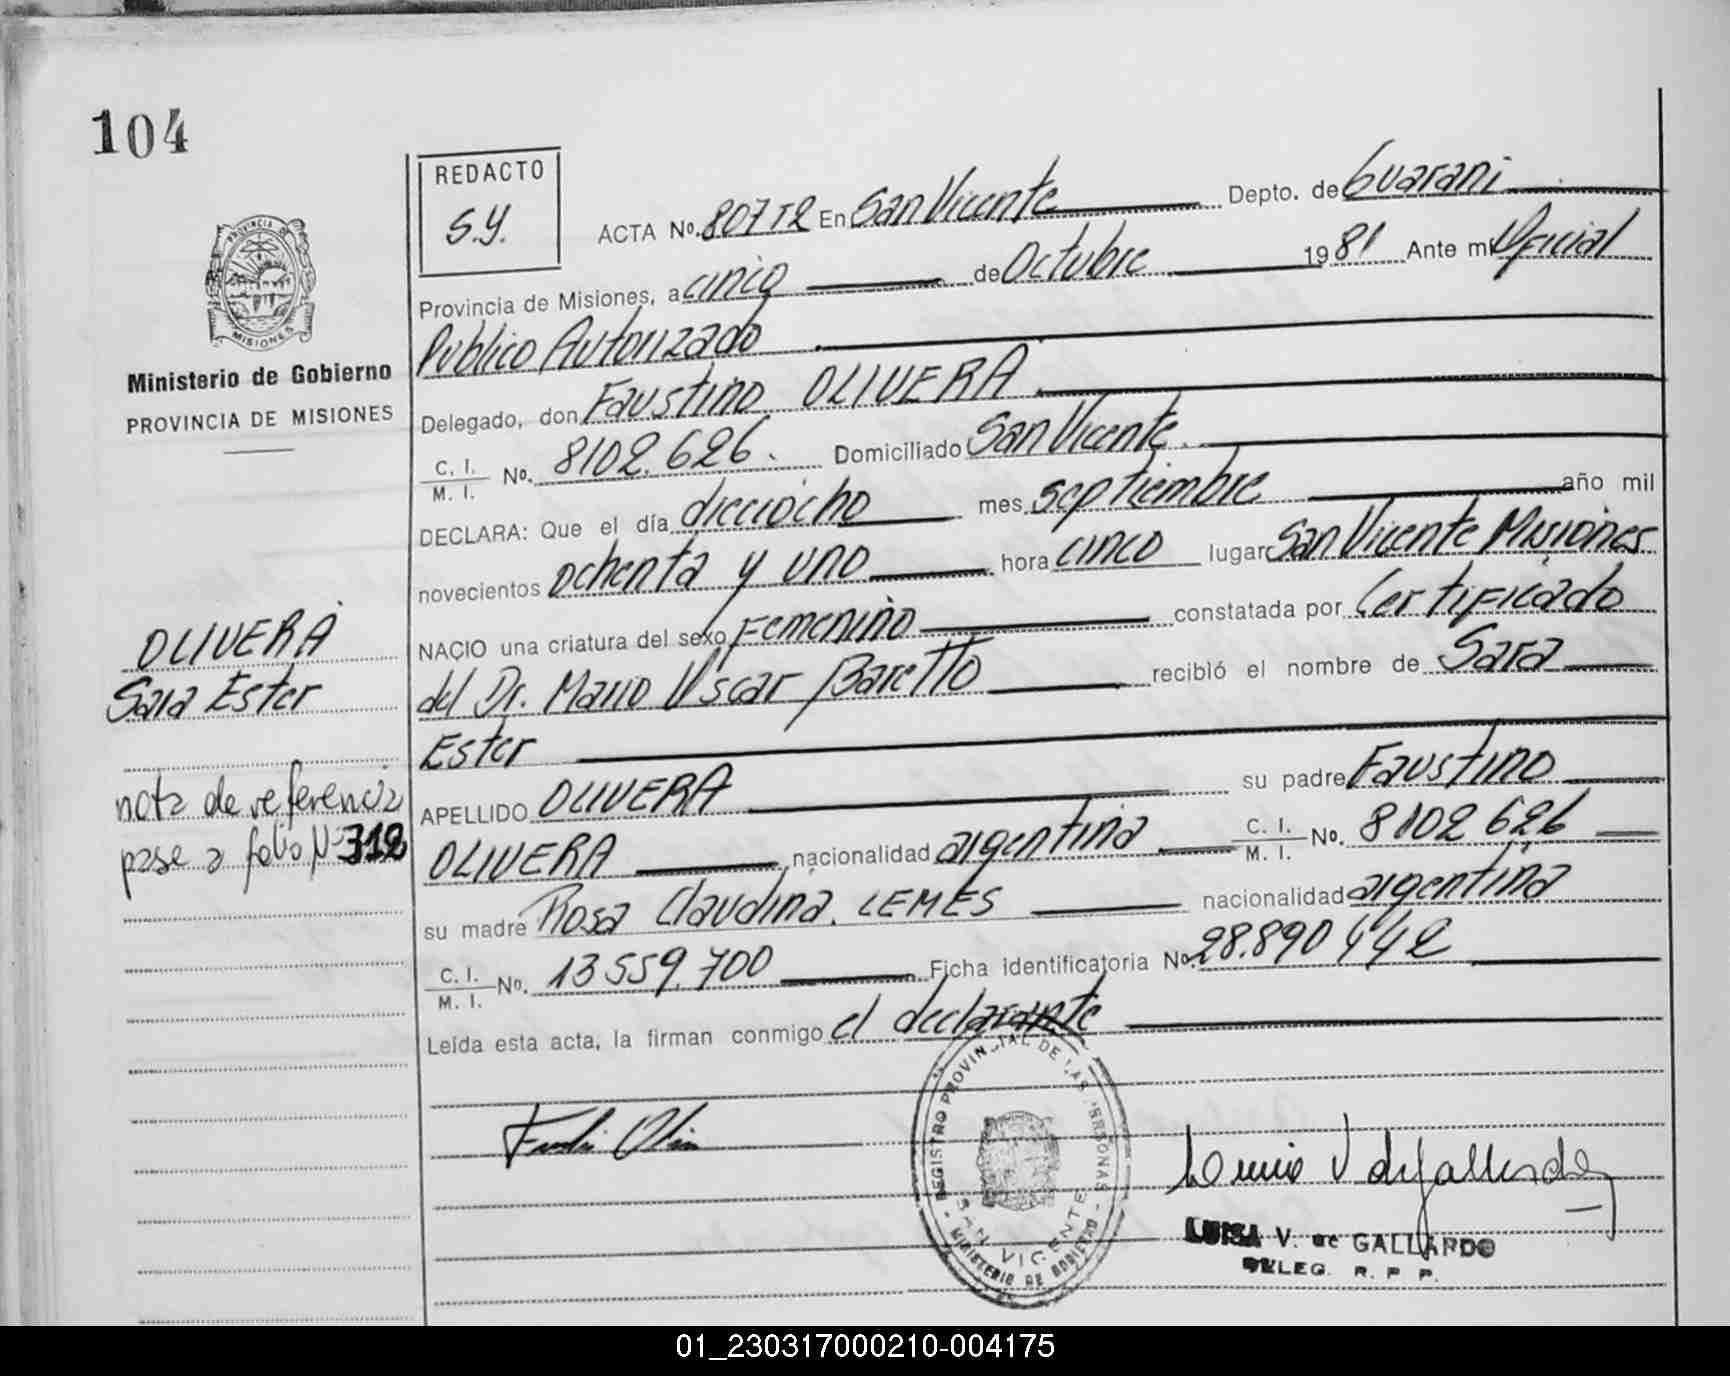 104
REDACTO
S.Y.
ACTA No. 807 T2 En San Vicente Depto. de Guarani
Provincia de Misiones, a cinco de Octubre 1981 Ante mi Oficial
Publico Autorizado
Delegado, don Faustino OLIVERA
C. I.
M. I. No. 8102.626. Domiciliado San Vicente.
DECLARA: Que el día dieciocho mes septiembre año mil
novecientos ochenta y uno hora cinco lugar San Vicente Misiones
NACIO una criatura del sexo Femenino constatada por Certificado
del Dr. Mario Oscar Baretto recibió el nombre de Sara
Ester
APELLIDO OLIVERA su padre Faustino
OLIVERA nacionalidad argentina C. I.
M. I. No. 8102 626
su madre Rosa Claudina. LEMES nacionalidad argentina
C. I.
M. I. No. 13 559.700 Ficha identificatoria No. 28.890 442
Leída esta acta, la firman conmigo el declarante
PROVINCIA DE
MISIONES
Ministerio de Gobierno
PROVINCIA DE MISIONES
OLIVERA
Sara Ester
nota de referencia
pase a folio Nº 312
REGISTRO PROVINCIAL DE LAS PERSONAS
SAN VICENTE
- MINISTERIO DE GOBIERNO -
LUISA V. de GALLARDO
DELEG. R. P. P.
01_230317000210-004175